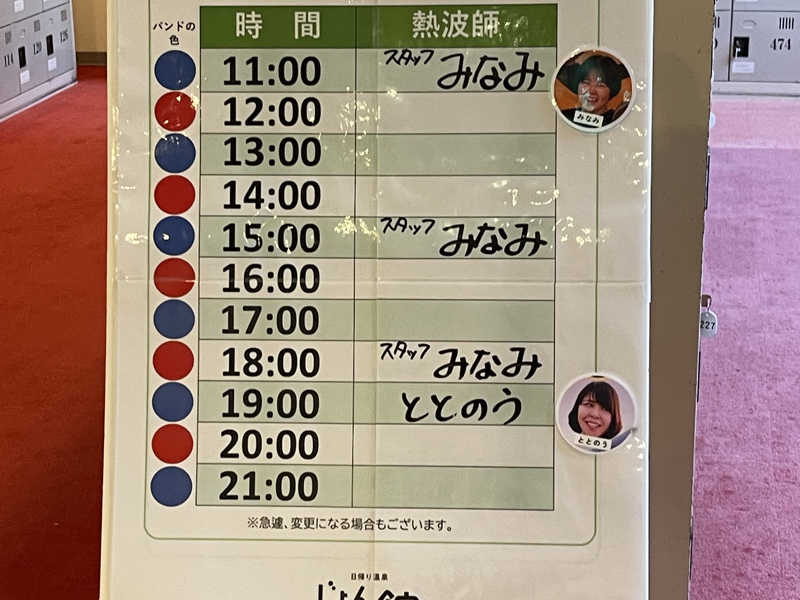 バンドの
色
時 間
熱波師
11:00
スタッフ みなみ
みなみ
12:00
13:00
14:00
15:00
スタッフ みなみ
16:00
17:00
18:00
スタッフ みなみ
19:00
ととのう
ととのう
20:00
21:00
※急遽、変更になる場合もございます。
日帰り温泉
114
120
126
474
227